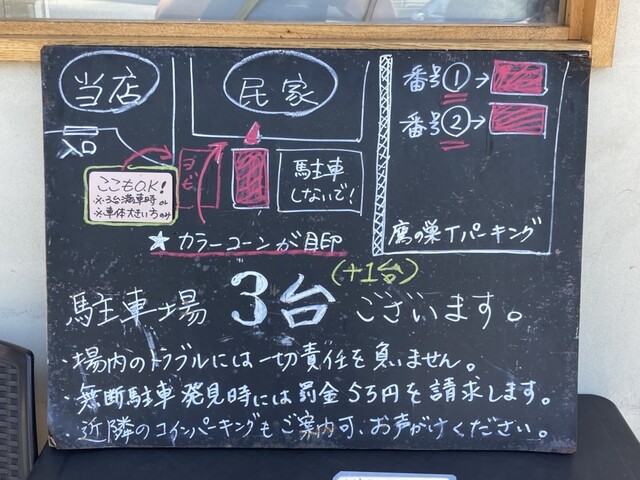 当店
民家
番号①→
番号②→
入口
ここもO.K!
※3台満車時or
※車体大きい方のみ
ココも
駐車
しないで!
鷹の巣Tパーキング
★カラーコーンが目印
(+1台)
駐車場 3台 ございます。
・場内のトラブルには一切責任を負いません。
・無断駐車発見時には罰金5万円を請求します。
近隣のコインパーキングもご案内可、お声がけください。